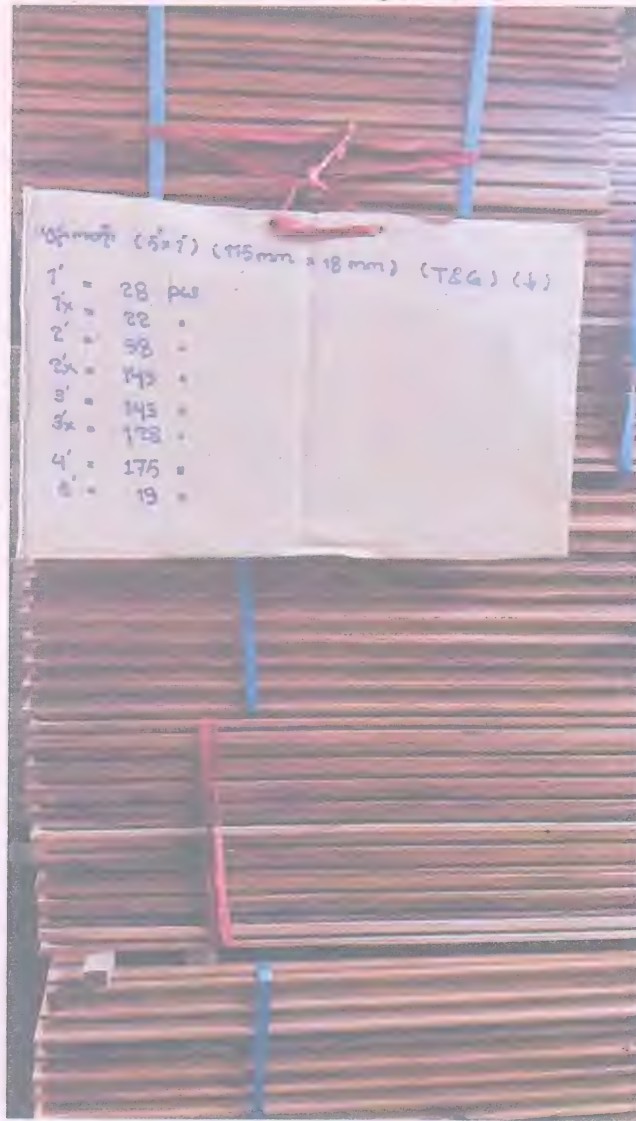 (5"×1") (115mm × 18mm) (T&G) (↓)
1' = 28 pcs
1'x = 22 "
2' = 58 "
2'x = 145 "
3' = 145 "
3'x = 128 "
4' = 175 "
= 19 "